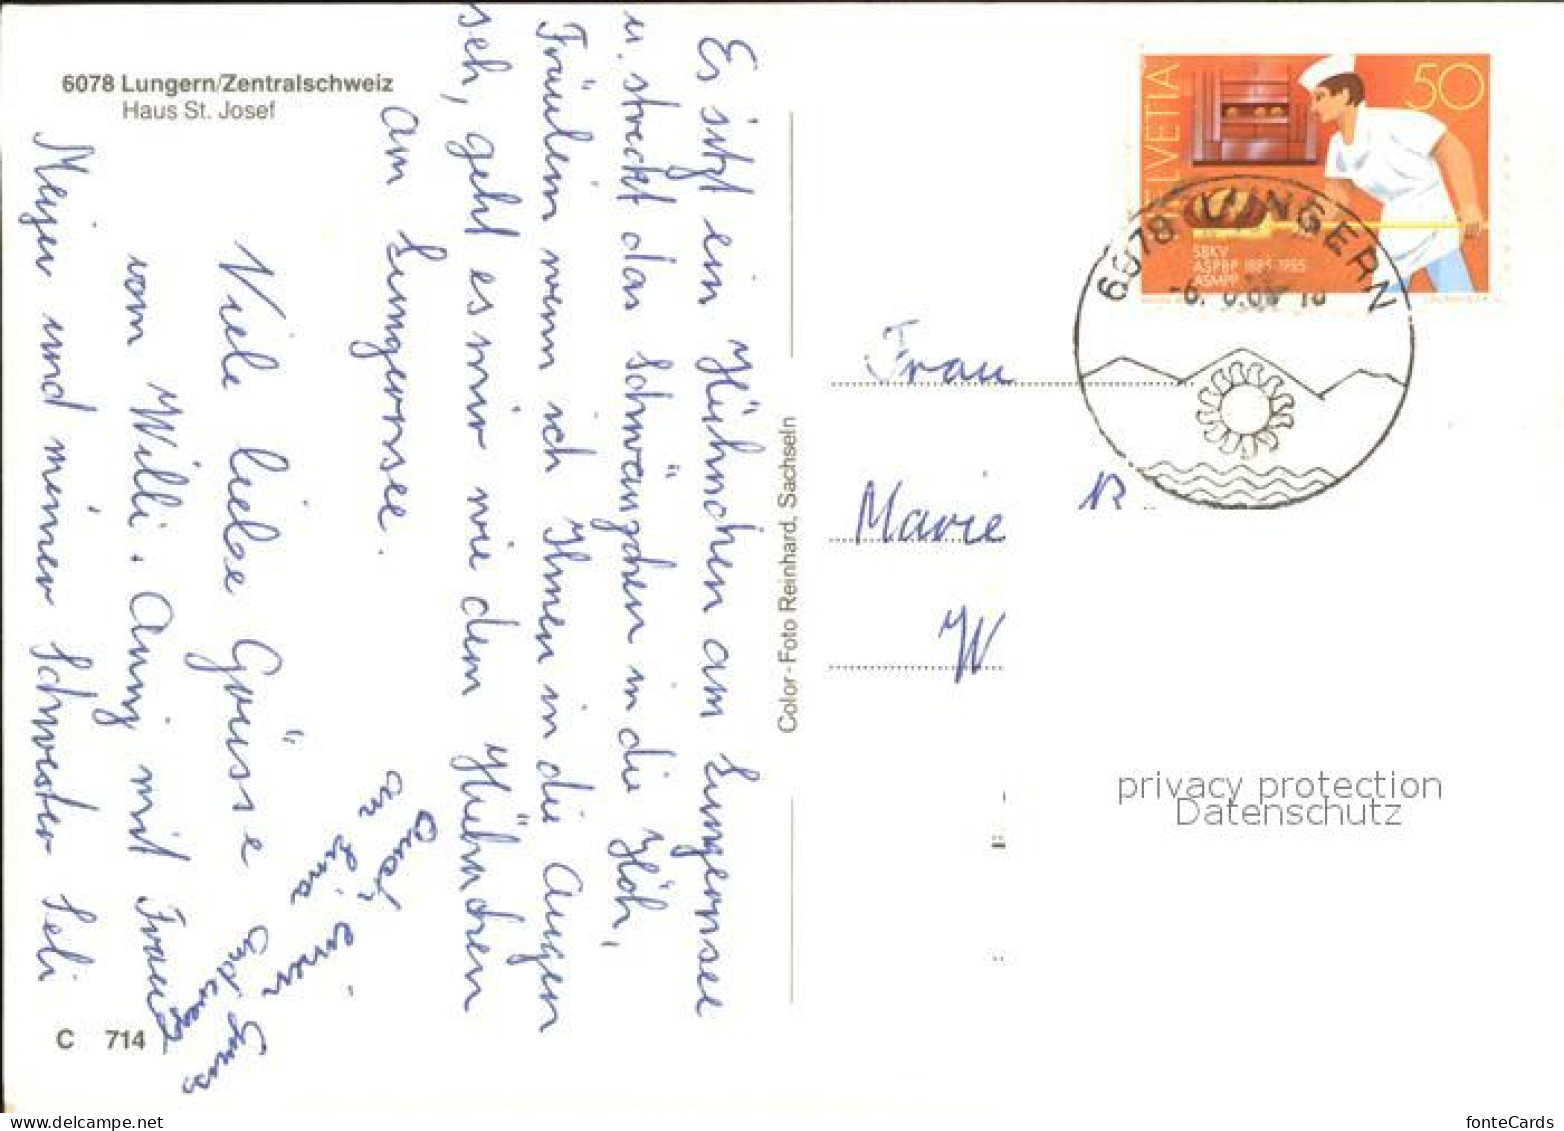 6078 Lungern/Zentralschweiz
Haus St. Josef
Es sitzt ein Hühnchen am Lungernsee
u. streckt das Schwänzchen in die Höh,
Fräulein wenn ich Ihnen in die Augen
seh, geht es mir wie dem Hühnchen
am Lungernsee.
Viele liebe Grüsse
vom Willi + Anny mit Frau
Meyer und meiner Schwester Seli
Auch
an Lina
einen
Gruss
C 714
Color - Foto Reinhard, Sachseln
HELVETIA
50
SBKV
ASPBP 1885-1985
ASMPP
6078 LUNGERN
Frau
Marie
B
W
privacy protection
Datenschutz
www.ansichtskartenversand.com
fonteCards